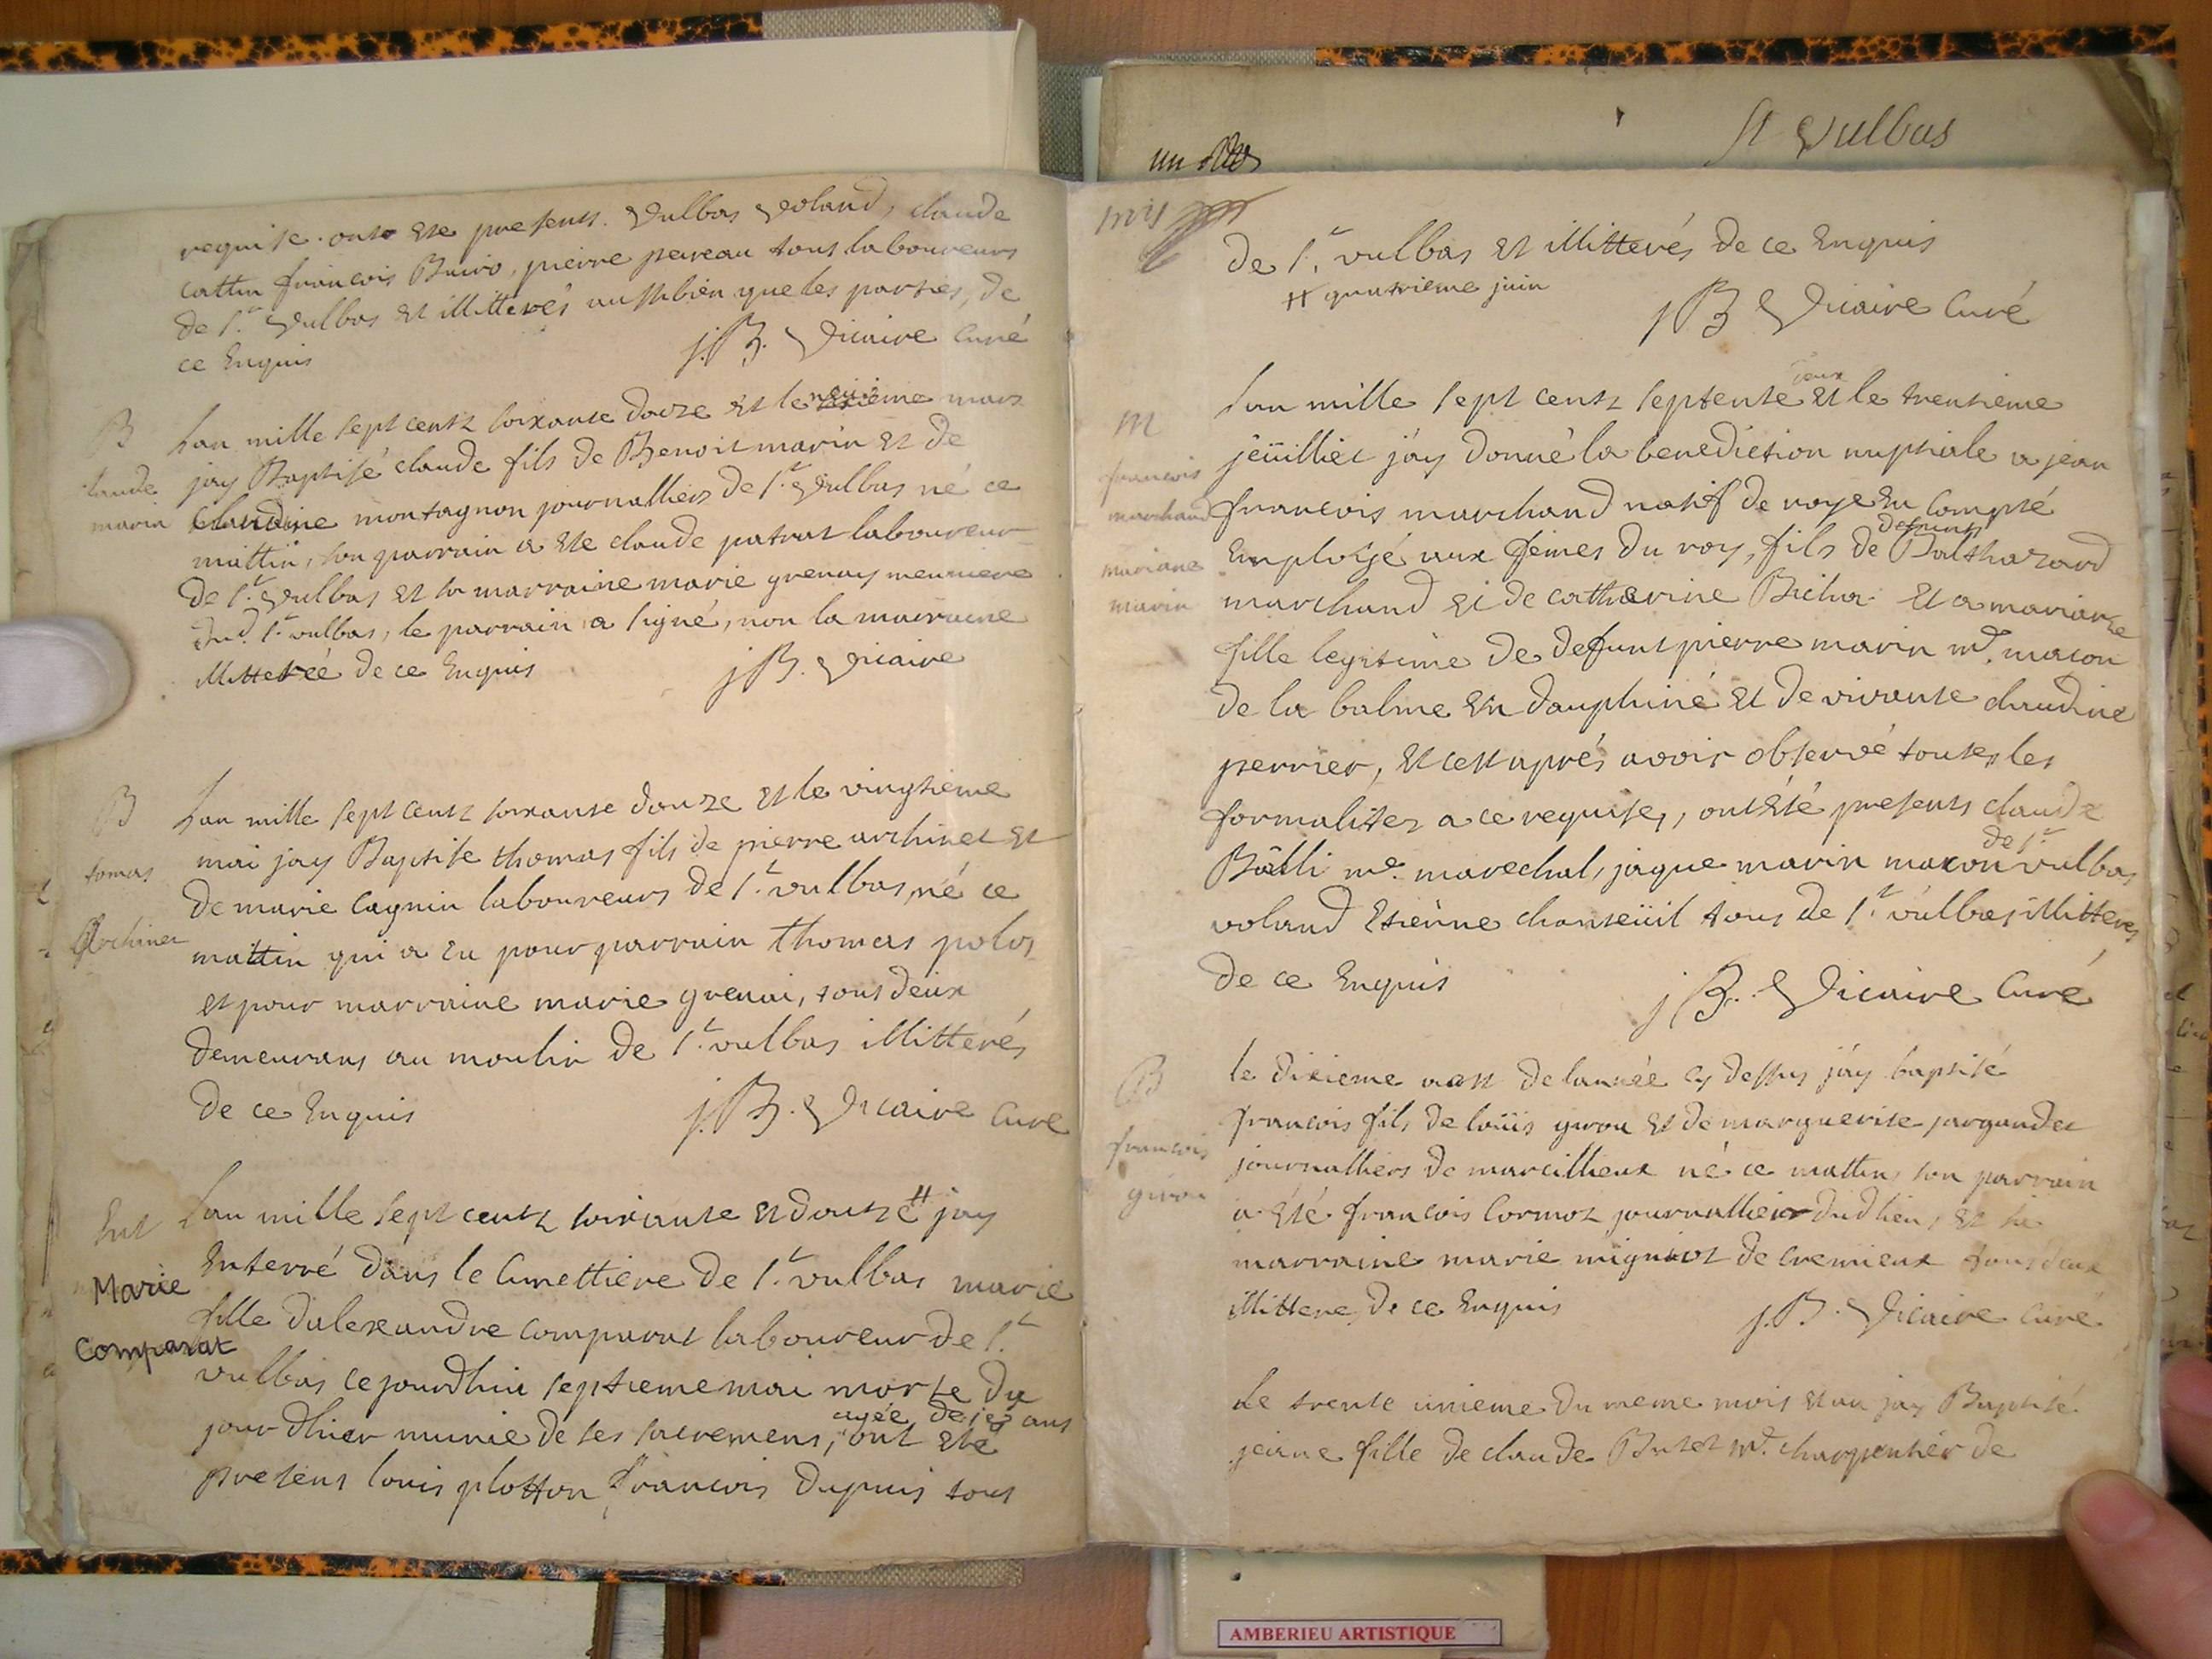 requise. ont ete presents. Vulbas Voland, claude
cattin francois Buiro, pierre pereau tous laboureurs
de St. Vulbas et illitterés aussibien que les parties, de
ce Enquis
j. B. Vicaire Curé
B
Lan mille sept centz soixante douze et le neuvième mars
jay Baptisé claude fils de Benoit marin et de
claude
marin
Claudine montagnon journalliers de St. Vulbas né ce
mattin, son parrain a ete claude patrat laboureur
de St. Vulbas et sa marraine marie grenay meuniere
dud. St. vulbas, le parrain a signé, non la marraine
illitterée de ce Enquis
j B. Vicaire
B
Lan mille sept centz soixante douze et le vingtième
mai jay Baptise thomas fils de pierre archinet et
tomas
Archinet
de marie Cagnin laboureurs de St. vulbas, né ce
mattin qui a eu pour parrain thomas polos
et pour marraine marie grenai, tous deux
demeurans au moulin de St. vulbas illitterés
de ce Enquis
j. B. Vicaire Curé
Ent
Lan mille sept centz soixante et douze # jay
Enterré dans le Cimettiere de St. vulbas marie
Marie
Comparat
fille dalexandre comparat laboureur de St.
vulbas cejourdhui septieme mai morte du
agée de ans
jour dhier munie de ses sacremens, ont eté
presens louis plotton, francois Dupuis tous
un
St Vulbas
trois
de St. vulbas et illitterés de ce Enquis
# quatrieme juin
j B Vicaire Curé
M
deux
Lan mille sept centz septente et le trentieme
jeüilliet jáy donné la benediction nuptiale a jean
francois
marchand
francois marchand natif de roye en Compté
defunt
Emploÿé aux fermes du roy, fils de Balthazard
mariane
marin
marchand et de catherine Bicha et a mariane
fille legitime de defunt pierre marin me. macon
de la balme en dauphiné et de vivante claudine
perrier, et cest aprés avoir observé toutes les
formalites a ce requises, ont été presents claude
de St.
Bälli me. marechal, jaque marin macon vulbas
voland Etienne chanteüil tous de St. vulbas, illitterés
de ce Enquis
j B. Vicaire Curé
B
le dixieme aost de lannée cy dessus jáy baptisé
francois
giron
francois fils de loüis giron et de marguerite jargandet
journalliers de marcillieux né ce mattin, son parrain
a été francois Cormoz journallier dud lieu, et sa
marraine marie migniot de cremieux tous deux
illittere, de ce Enquis
j. B. Vicaire Curé
Le trente unieme du meme mois et an jay Baptisé
jeanne fille de claude Butet me. charpentier de
AMBERIEU ARTISTIQUE